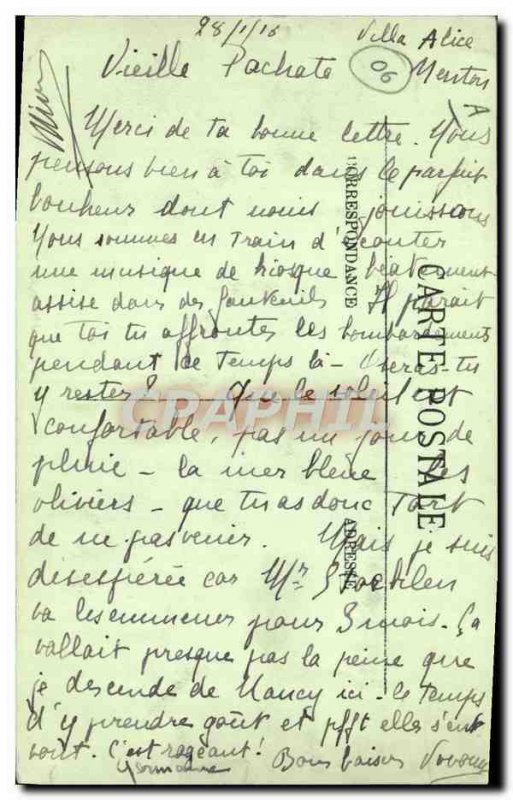 28/1/16
Villa Alice
Vieille Pachate 06 Menton
Merci de ta bonne lettre. Nous
pensons bien à toi dans le parfait
bonheur dont nous jouissons
Nous sommes en train d'écouter
une musique de kiosque béatement
assise dans des fauteuils Il paraît
que toi tu affrontes les bombardements
pendant ce temps là - Oseras-tu
y rester? - Que le soleil est
confortable, pas un jour de
pluie - la mer bleue les
oliviers - que tu as donc tort
de ne pas venir. Mais je suis
désespérée car Mr
va les emmener pour 3 mois. Ça
vallait presque pas la peine que
je descende de Nancy ici - le temps
d'y prendre goût et pfft elles s'en
vont. C'est rageant! Bons baisers
Germaine
CORRESPONDANCE
CARTE POSTALE
ADRESSE
CPAPHIL